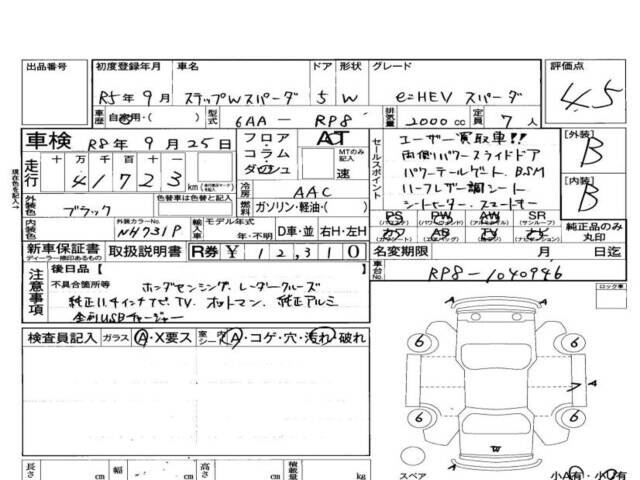 出品番号 初度登録年月 車名 ドア 形状 グレード 評価点
R5年9月 ステップWスパーダ 5 W e:HEV スパーダ 4.5
車歴 自家用・( ) 型式 6AA－RP8 排気量 2000cc 定員 7人
車検 R8年9月25日 フロア・コラム・ダッシュ AT MTのみ記入 速
セールスポイント
ユーザー買取車!!
両側パワースライドドア
パワーテールゲート．BSM
ハーフレザー調シート
シートヒーター．スマートキー
[外装] B
[内装] B
走行 十万千百十 41723 km
冷房 AAC
外装色 ブラック 色替車は色替と記入 燃料 ガソリン・軽油・( )
PS PW AW SR
純正品のみ丸印
内装色 外装カラーNo. NH731P 輸入車 モデル年式 年・不明 D車・並 右H・左H
新車保証書 ディーラー捺印あるもの 取扱説明書 R券 ¥12,310 名変期限 月 日迄
車台No. RP8-1040946
ロック車
注意事項
後日品〔 〕
不具合箇所等 ホンダセンシング．レーダークルーズ
純正11.4インチナビ．TV．オットマン．純正アルミ
全列USBチャージャー
検査員記入 ガラス A・X要ス 室内シート A・コゲ・穴・汚れ・破れ
A
6 6
A
6 6
W
スペア
小A有・小U有
長さ cm 幅 cm 高さ cm 積載量 kg